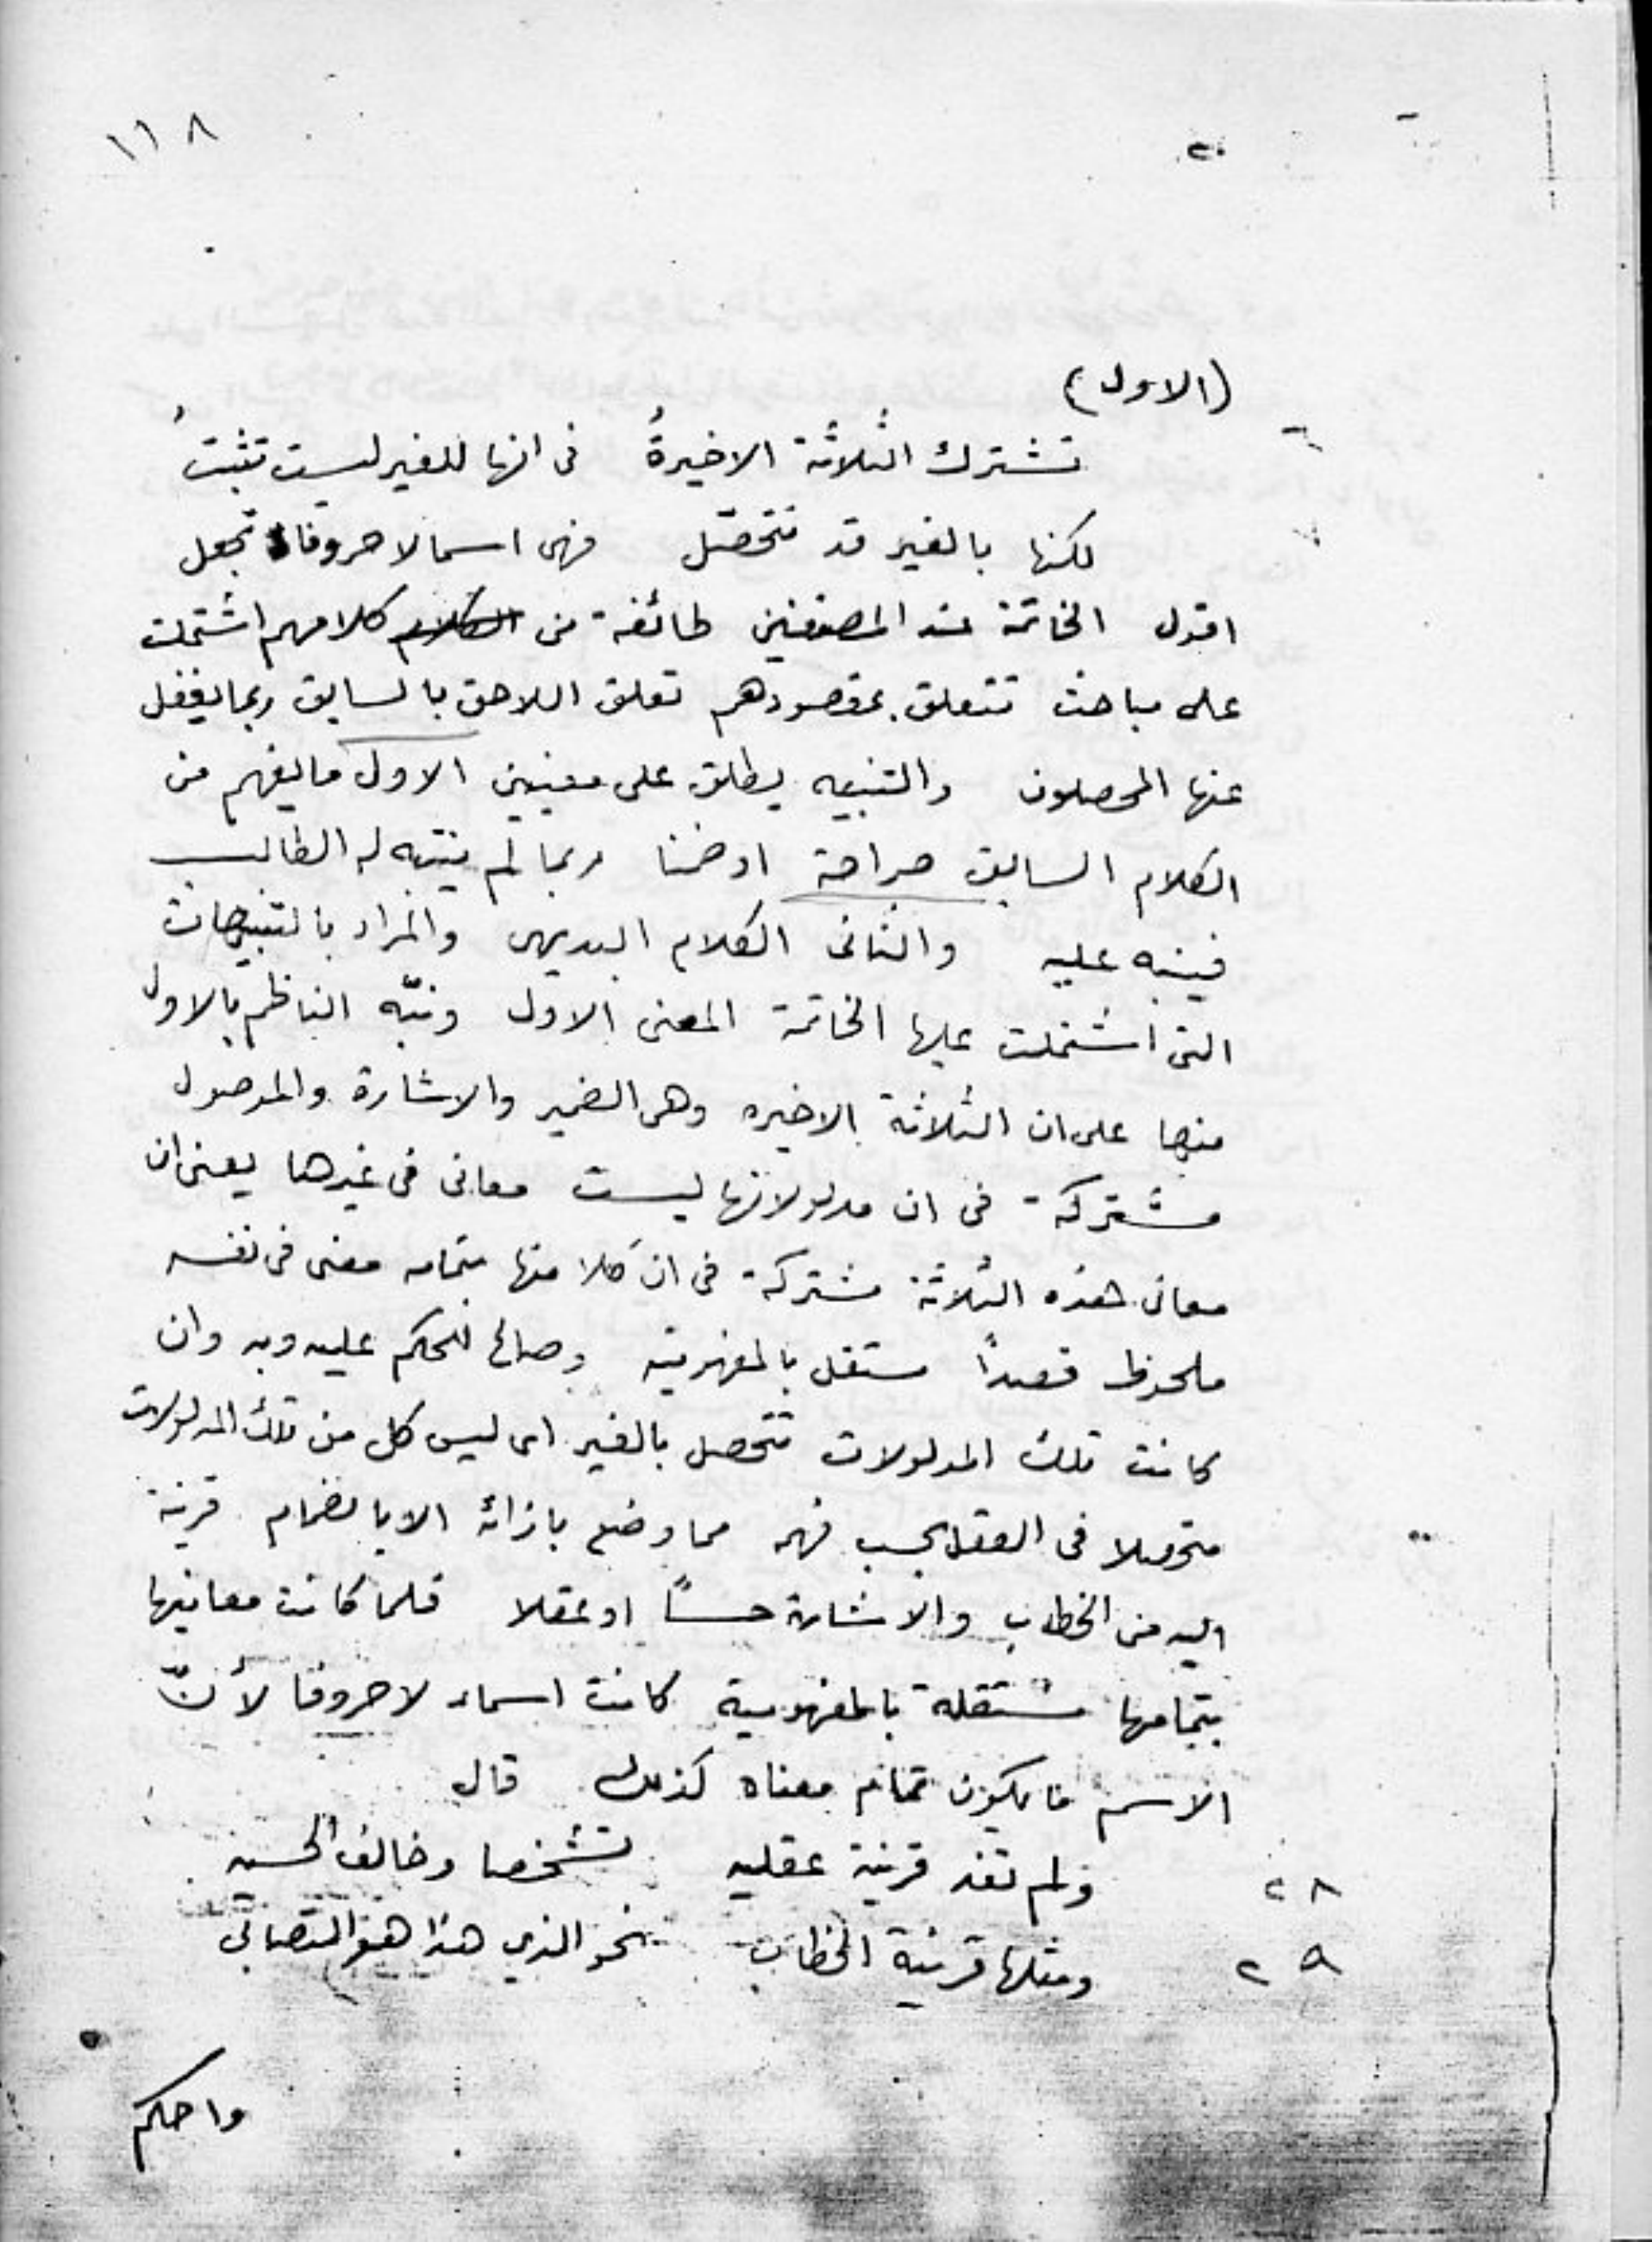 ١١٨
(الاول)
تشترك الثلاثة الاخيرةُ فى انها للغير ليست تثبتُ
لكنها بالغير قد تتحصّل فهى اسما لا حروفا تجعل
اقول الخاتمة عند المصنفين طائفة من كلامهم اشتملت
على مباحث تتعلق بمقصودهم تعلق اللاحق بالسابق ربما يغفل
عنها المحصلون والتنبيه يطلق على معنيين الاول ما يفهم من
الكلام السابق صراحة او ضمنا ربما لم ينتبه له الطالب
فينبه عليه والثانى الكلام البديهى والمراد بالتنبيهات
التى اشتملت عليها الخاتمة المعنى الاول ونبّه الناظم بالاول
منها على ان الثلاثة الاخيره وهى الضمير والاشارة والموصول
مشتركة فى ان مدلولاتها ليست معانى فى غيرها يعنى ان
معانى هذه الثلاثة مشتركة فى ان كلا منها بتمامه معنى فى نفسه
ملحوظ قصداً مستقل بالمفهومية وصالح للحكم عليه وبه وان
كانت تلك المدلولات تتحصل بالغير اى ليس كل من تلك المدلولات
متحصلا فى العقل بحسب فهمه مما وضع بازائه الا بانضمام قرينة
اليه من الخطاب والاشارة حساً او عقلا فلما كانت معانيها
بتمامها مستقلة بالمفهومية كانت اسماء لا حروفا لأنّ
الاسم ما يكون تمام معناه كذلك قال
٢٨ ولم تفد قرينة عقليه تشخصا وخالف الحسيه
٢٩ ومثلها قرينة الخطاب نحو الذي هذا هو التصابى
واحكم